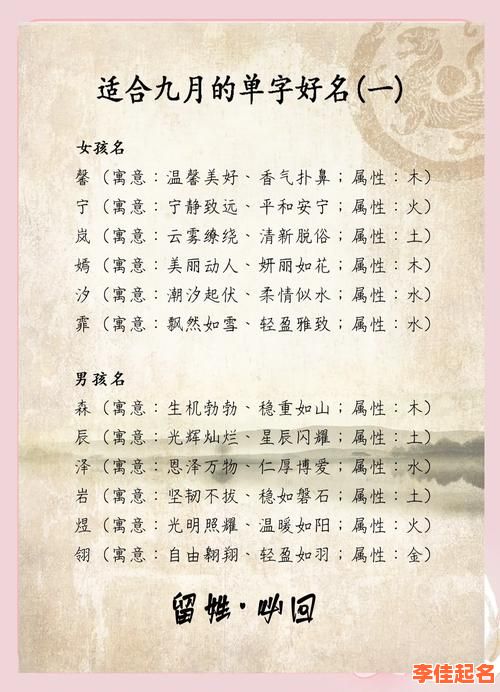 适合九月的单字好名(一)
女孩名
馨（寓意：温馨美好、香气扑鼻；属性：木）
宁（寓意：宁静致远、平和安宁；属性：火）
岚（寓意：云雾缭绕、清新脱俗；属性：土）
嫣（寓意：美丽动人、妍丽如花；属性：木）
汐（寓意：潮汐起伏、柔情似水；属性：水）
霏（寓意：飘然如雪、轻盈雅致；属性：水）
男孩名
森（寓意：生机勃勃、稳重如山；属性：木）
辰（寓意：光辉灿烂、星辰闪耀；属性：土）
泽（寓意：恩泽万物、仁厚博爱；属性：水）
岩（寓意：坚韧不拔、稳如磐石；属性：土）
煜（寓意：光明照耀、温暖如阳；属性：火）
翎（寓意：自由翱翔、轻盈如羽；属性：金）
留姓·必回
李佳起名